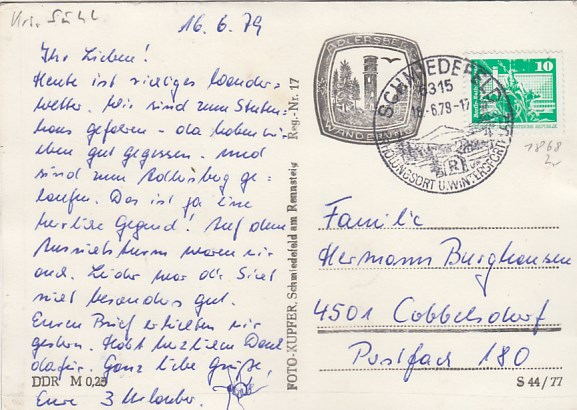 Krs. Suhl
16.6.79
Ihr Lieben!
Heute ist richtiges Wander=
wetter. Wir sind zum Stuten=
haus gefahren - da haben wir
eben gut gegessen. und
sind zum Adlersberg ge=
laufen. Das ist ja eine
herrliche Gegend! Auf dem
Aussichtsturm waren wir
auch. Leider war die Sicht
nicht besonders gut.
Euren Brief erhielten wir
gestern. Habt herzlichen Dank
dafür. Ganz liebe Grüße,
Eure 3 Urlauber.
DDR M 0,25
FOTO-KUPFER, Schmiedefeld am Rennsteig Reg.-Nr. 17
ADLERSBERG
WANDERUNG
SCHMIEDEFELD
6315
16.-6.79-17
ERHOLUNGSORT U. WINTERSPORT
(R)
10
DEUTSCHE
1868
Familie
Hermann Burghausen
4501 Cobbelsdorf
Postfach 180
S 44/77